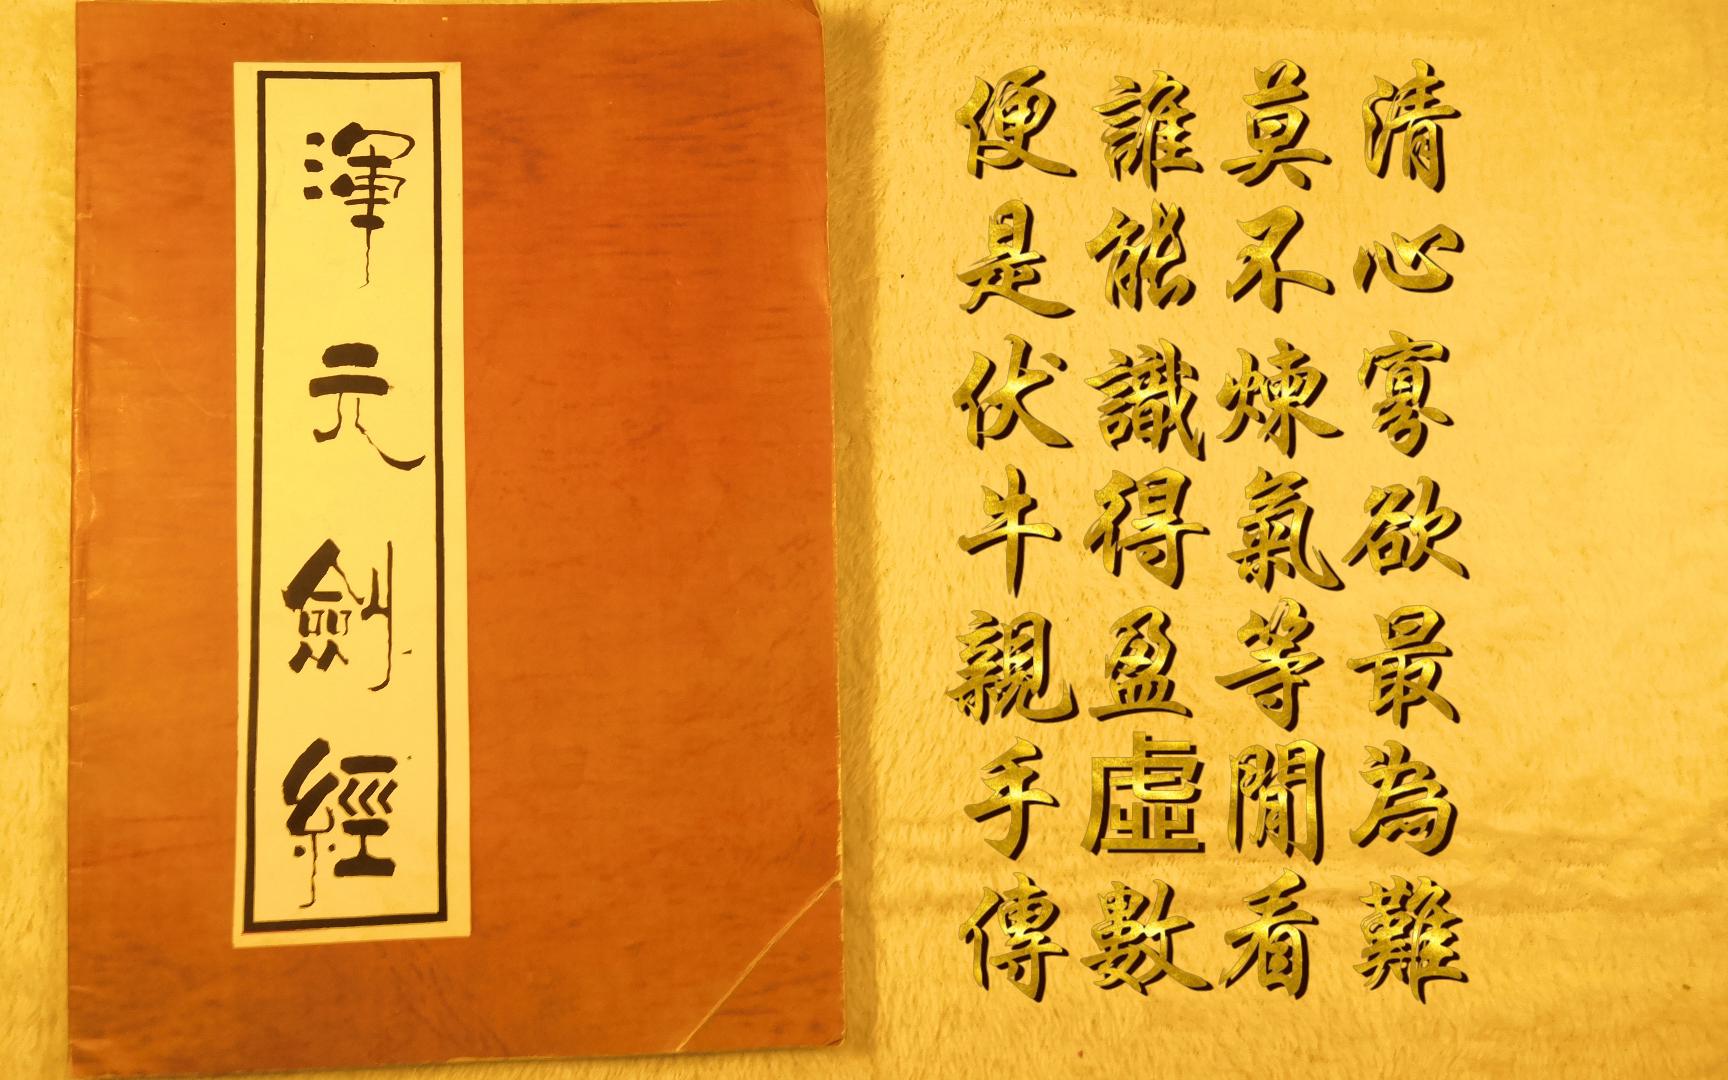 渾元劍經
清心寡欲最為難
莫不煉氣等閒看
誰能識得盈虛數
便是伏牛親手傳